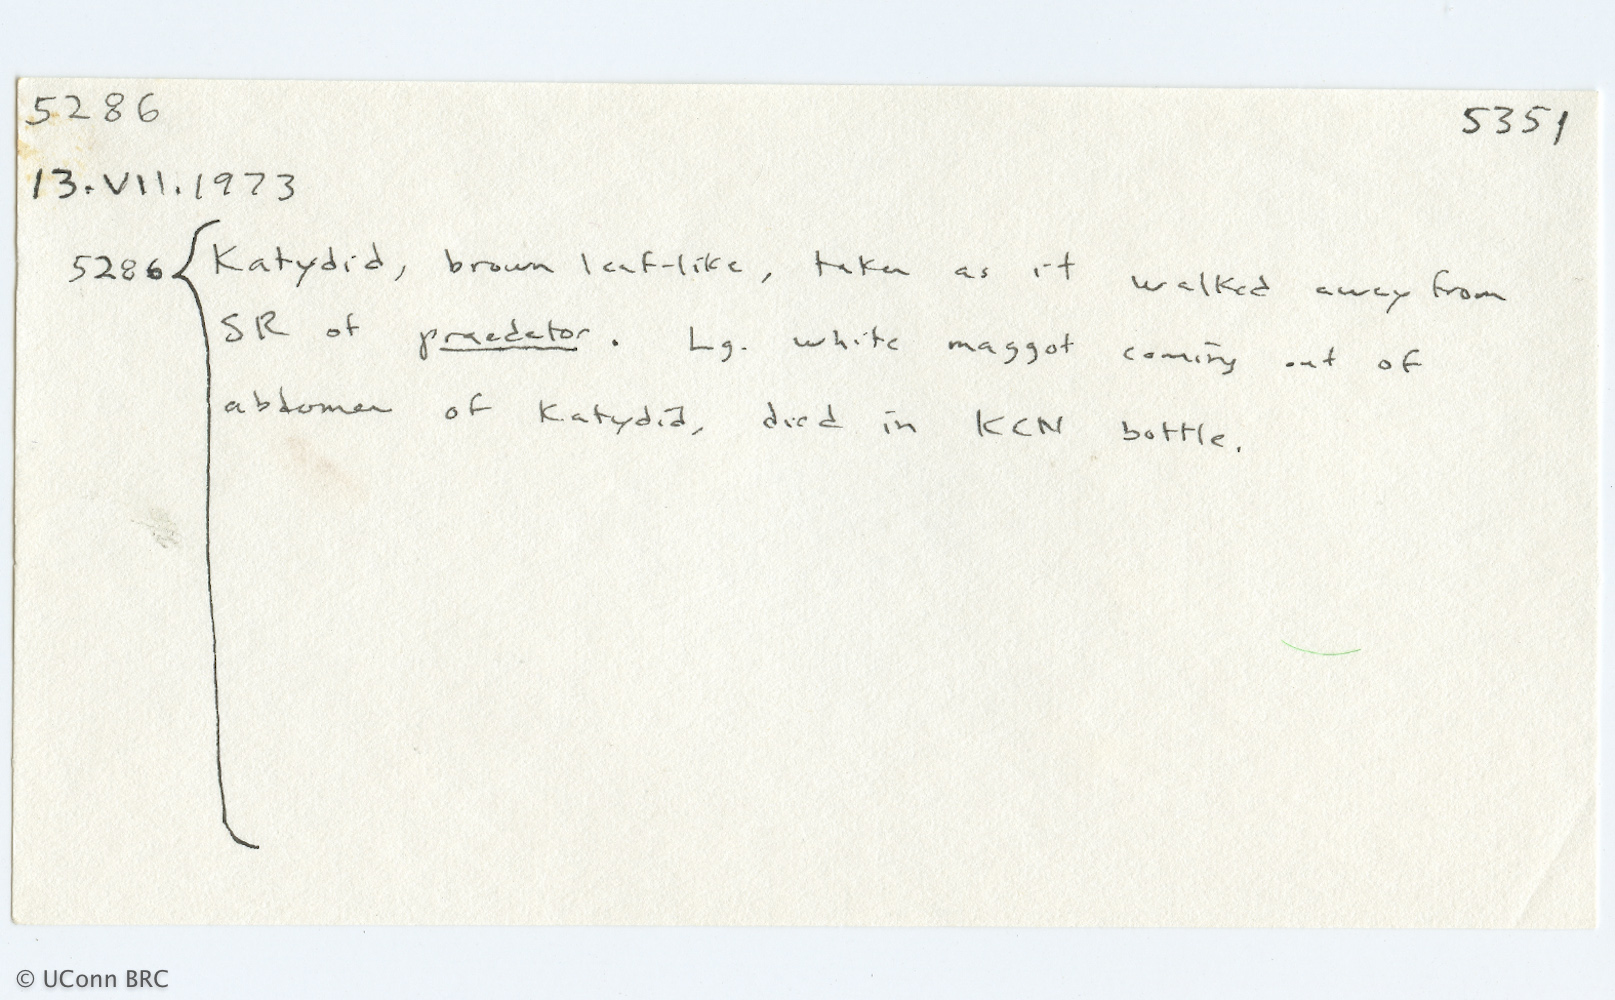 5286 5351
13.VII.1973
5286 { Katydid, brown leaf-like, taken as it walked away from
SR of praedator. Lg. white maggot coming out of
abdomen of Katydid, died in KCN bottle.
© UConn BRC